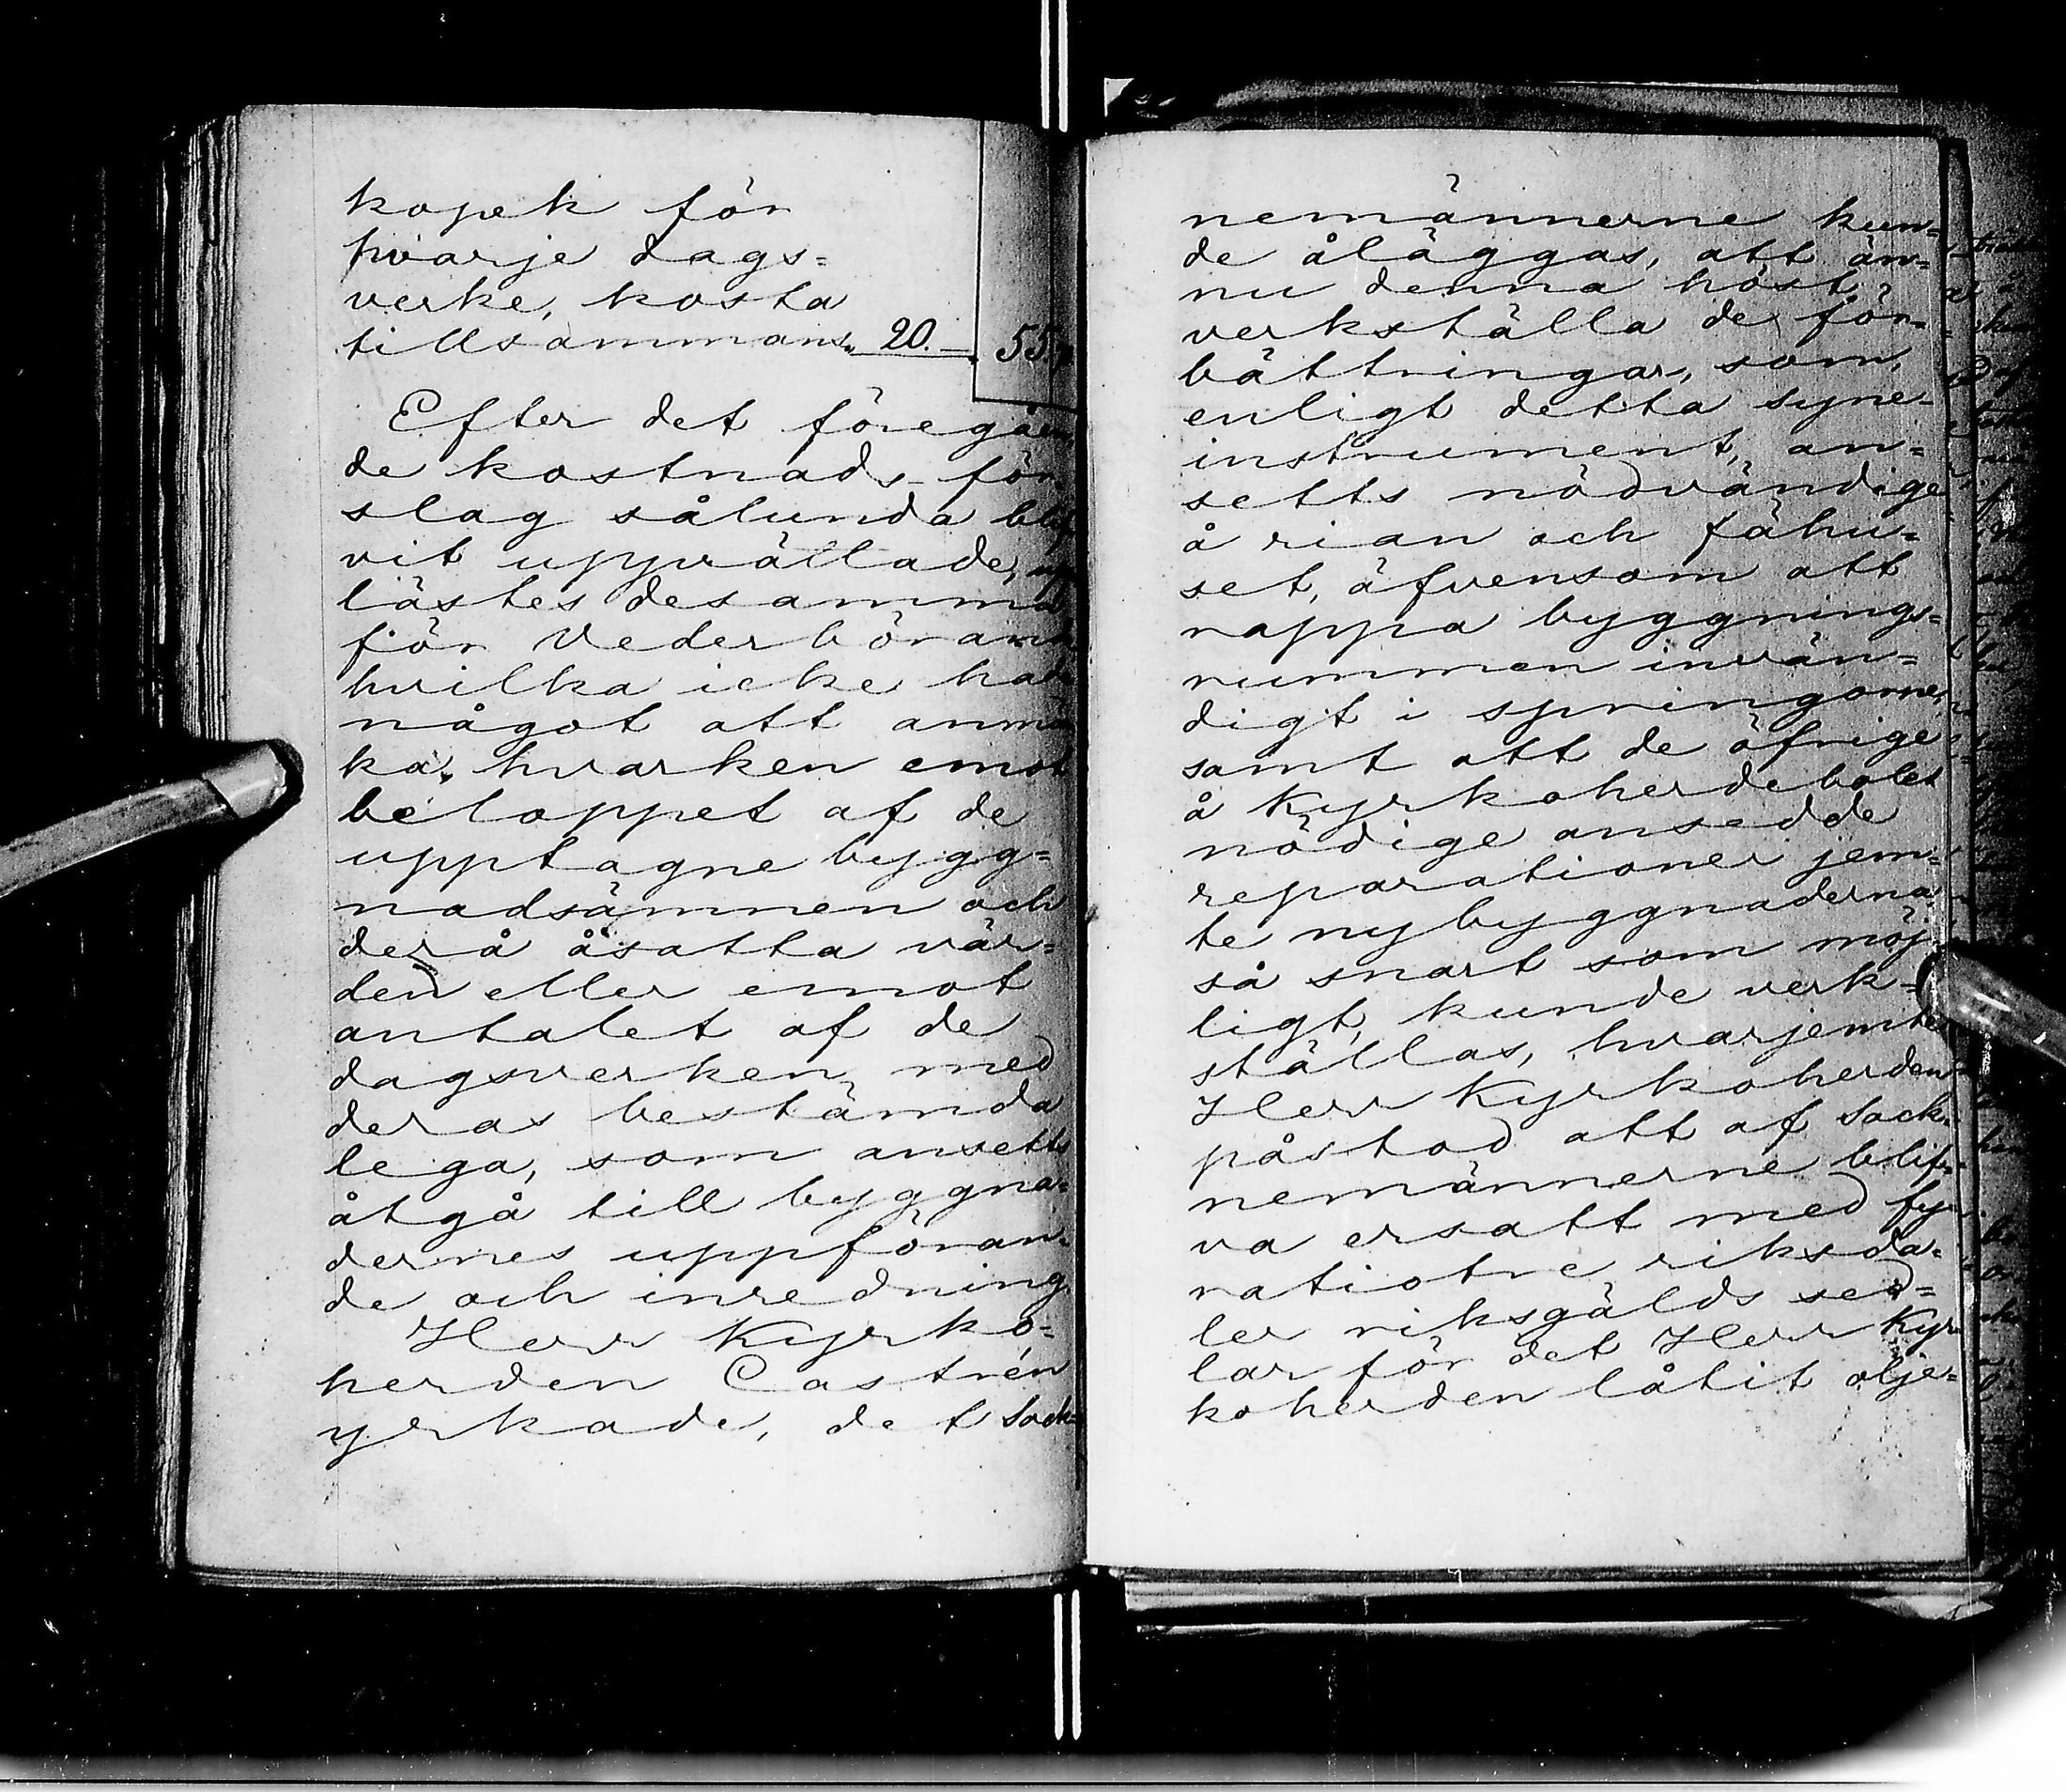 kopek för
hvarje dags=
verke, kosta
tillsammans " 20.— 55
Efter det föregåen
de kostnads-för
slag sålunda blif
vit upprättade, up
lästes desamma
för Vederbörand
hvilka icke hade
något att anmä
ka, hvarken emot
beloppet af de
upptagne bygg=
nadsämnen och
derå åsatta vär=
den eller emot
antalet af de
dagsverken, med
deras bestämda
lega, som ansetts
åtgå till byggna=
dernes uppföran=
de och inredning
Herr Kyrko=
herden Castrén
yrkade, det Sock=
nemännerne kun=
de åläggas, att än=
nu denna höst
verkställa de för=
bättringar, som,
enligt detta syne-
instrument, an=
setts nödvändige
å rian och fähu=
set, äfvensom att
rappa byggnings=
rummen invän=
digt i springorne,
samt att de öfrige
å Kyrkoherdebolet
nödige ansedde
reparationer jem=
te nybyggnaderna
så snart som möj
ligt, kunde verk=
ställas, hvarjemte
Herr Kyrkoherden
påstod att af Sock=
nemännerne blif=
va ersatt med fy
ratiotre riksda=
ler riksgälds sed=
lar för det Herr Kyr
koherden låtit olje=